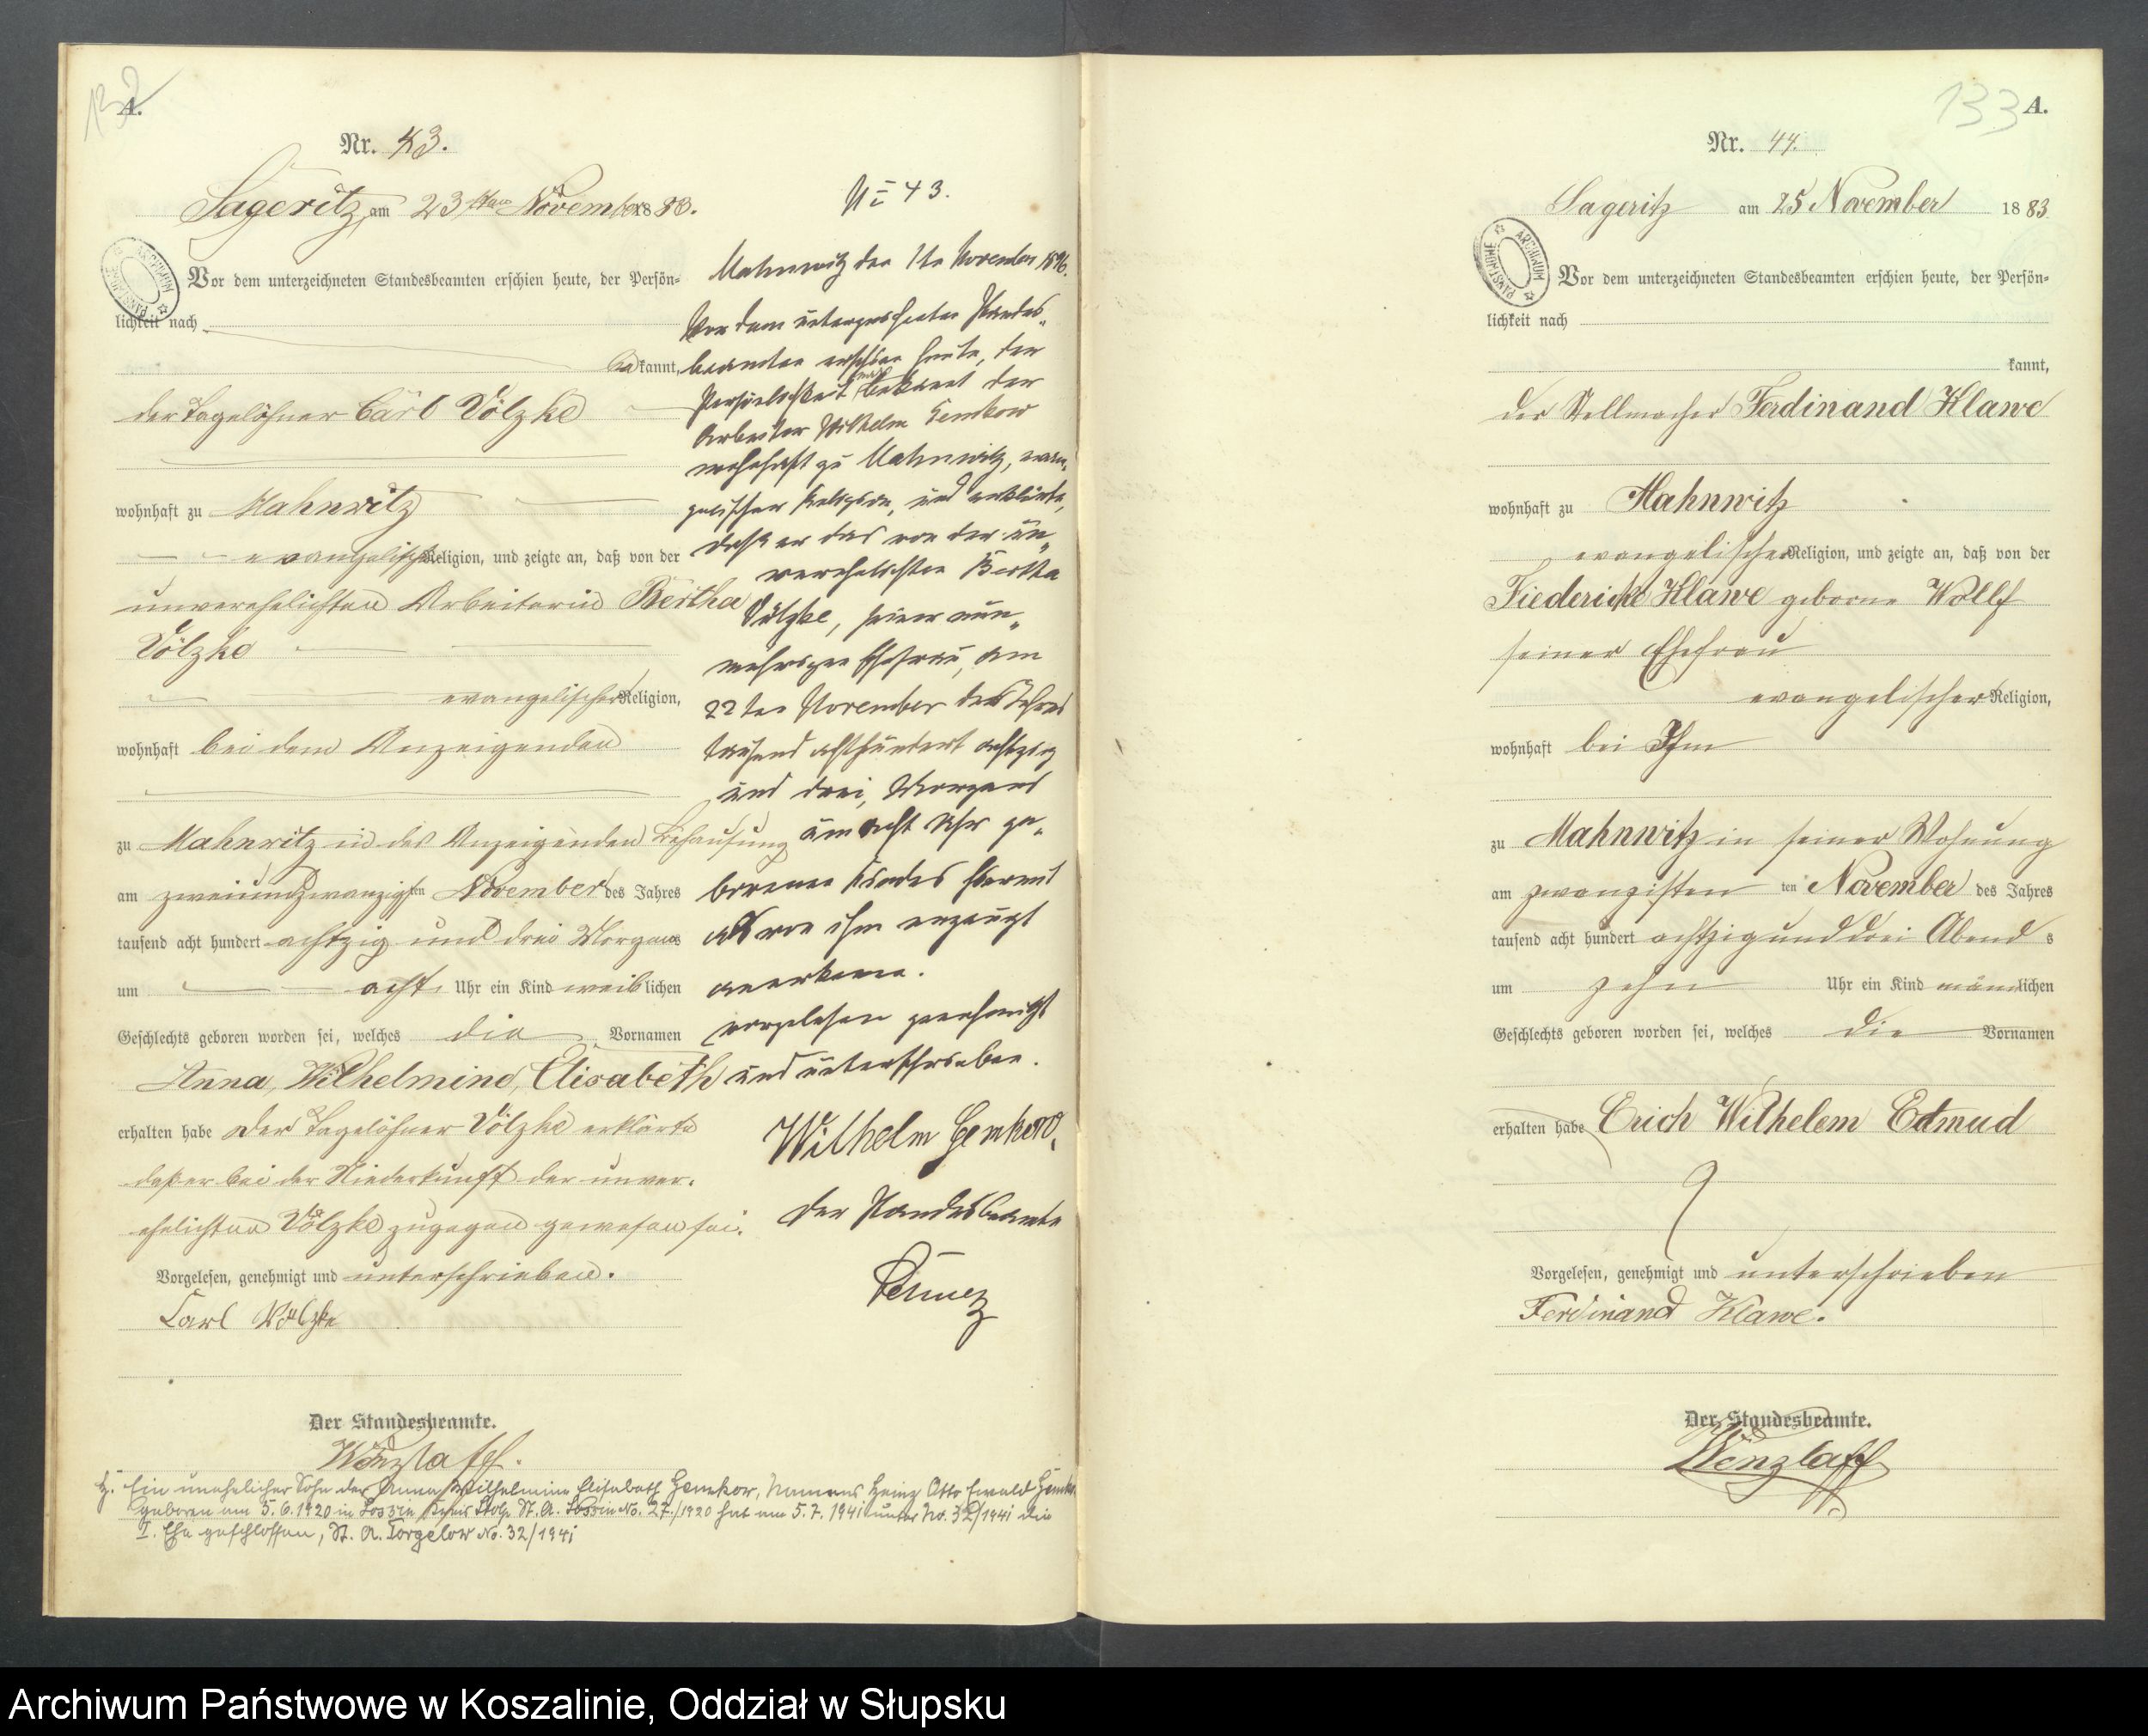 132
A.
Nr. 43.
Sageritz, am 23sten November 1883.
Vor dem unterzeichneten Standesbeamten erschien heute, der Persön-
lichkeit nach
bekannt,
der Tagelöhner Carl Völzke
wohnhaft zu Mahnwitz
evangelischer Religion, und zeigte an, daß von der
unverehelichten Arbeiterin Bertha
Völzke
evangelischer Religion,
wohnhaft bei dem Anzeigenden
zu Mahnwitz in des Anzeigenden Behausung
am zweiundzwanzigsten November des Jahres
tausend acht hundert achtzig und drei Morgens
um acht Uhr ein Kind weiblichen
Geschlechts geboren worden sei, welches die Vornamen
Anna, Wilhelmine, Elisabeth
erhalten habe der Tagelöhner Völzke erklärte
daß er bei der Niederkunft der unver-
ehelichten Völzke zugegen gewesen sei.
Vorgelesen, genehmigt und unterschrieben.
Carl Völzke
Der Standesbeamte.
Wenzlaff.
No 43.
Mahnwitz den 1ten November 1896.
Vor dem unterzeichneten Standes-
beamten erschien heute, der
Persönlichkeit nach bekannt der
Arbeiter Wilhelm Gemkow
wohnhaft zu Mahnwitz, evan-
gelischer Religion, und erklärte,
daß er das von der un-
verehelichten Bertha
Völzke, seiner nun-
mehrigen Ehefrau, am
22ten November des Jahres
tausend achthundert achtzig
und drei, Morgens
um acht Uhr ge-
borenen Kindes hiermit
als von ihm erzeugt
anerkenne.
vorgelesen genehmigt
und unterschrieben.
Wilhelm Gemkow,
Der Standesbeamte
H. Ein unehelicher Sohn der Anna Wilhelmine Elisabeth Gemkow, Namens Heinz Otto Ewald Gemkow
geboren am 5.6.1920 in Lossin Kreis Stolp St. A. Lossin No. 27/1920 hat am 5.7.1941 unter No. 32/1941 die
I. Ehe geschlossen, St. A. Torgelow No. 32/1941
133
A.
Nr. 44.
Sageritz am 25 November 1883
Vor dem unterzeichneten Standesbeamten erschien heute, der Persön-
lichkeit nach
kannt,
der Stellmacher Ferdinand Klawe
wohnhaft zu Mahnwitz
evangelischer Religion, und zeigte an, daß von der
Fiedericke Klawe geborne Wollf
seiner Ehefrau
evangelischer Religion,
wohnhaft bei Ihm
zu Mahnwitz in seiner Wohnung
am zwanzisten ten November des Jahres
tausend acht hundert achtzig und drei Abend s
um zehn Uhr ein Kind männlichen
Geschlechts geboren worden sei, welches die Vornamen
erhalten habe Erich Wilhelem Edmud
Vorgelesen, genehmigt und unterschrieben
Ferdinand Klawe.
Der Standesbeamte.
Wenzlaff
ARCHIWUM PAŃSTWOWE
Archiwum Państwowe w Koszalinie, Oddział w Słupsku